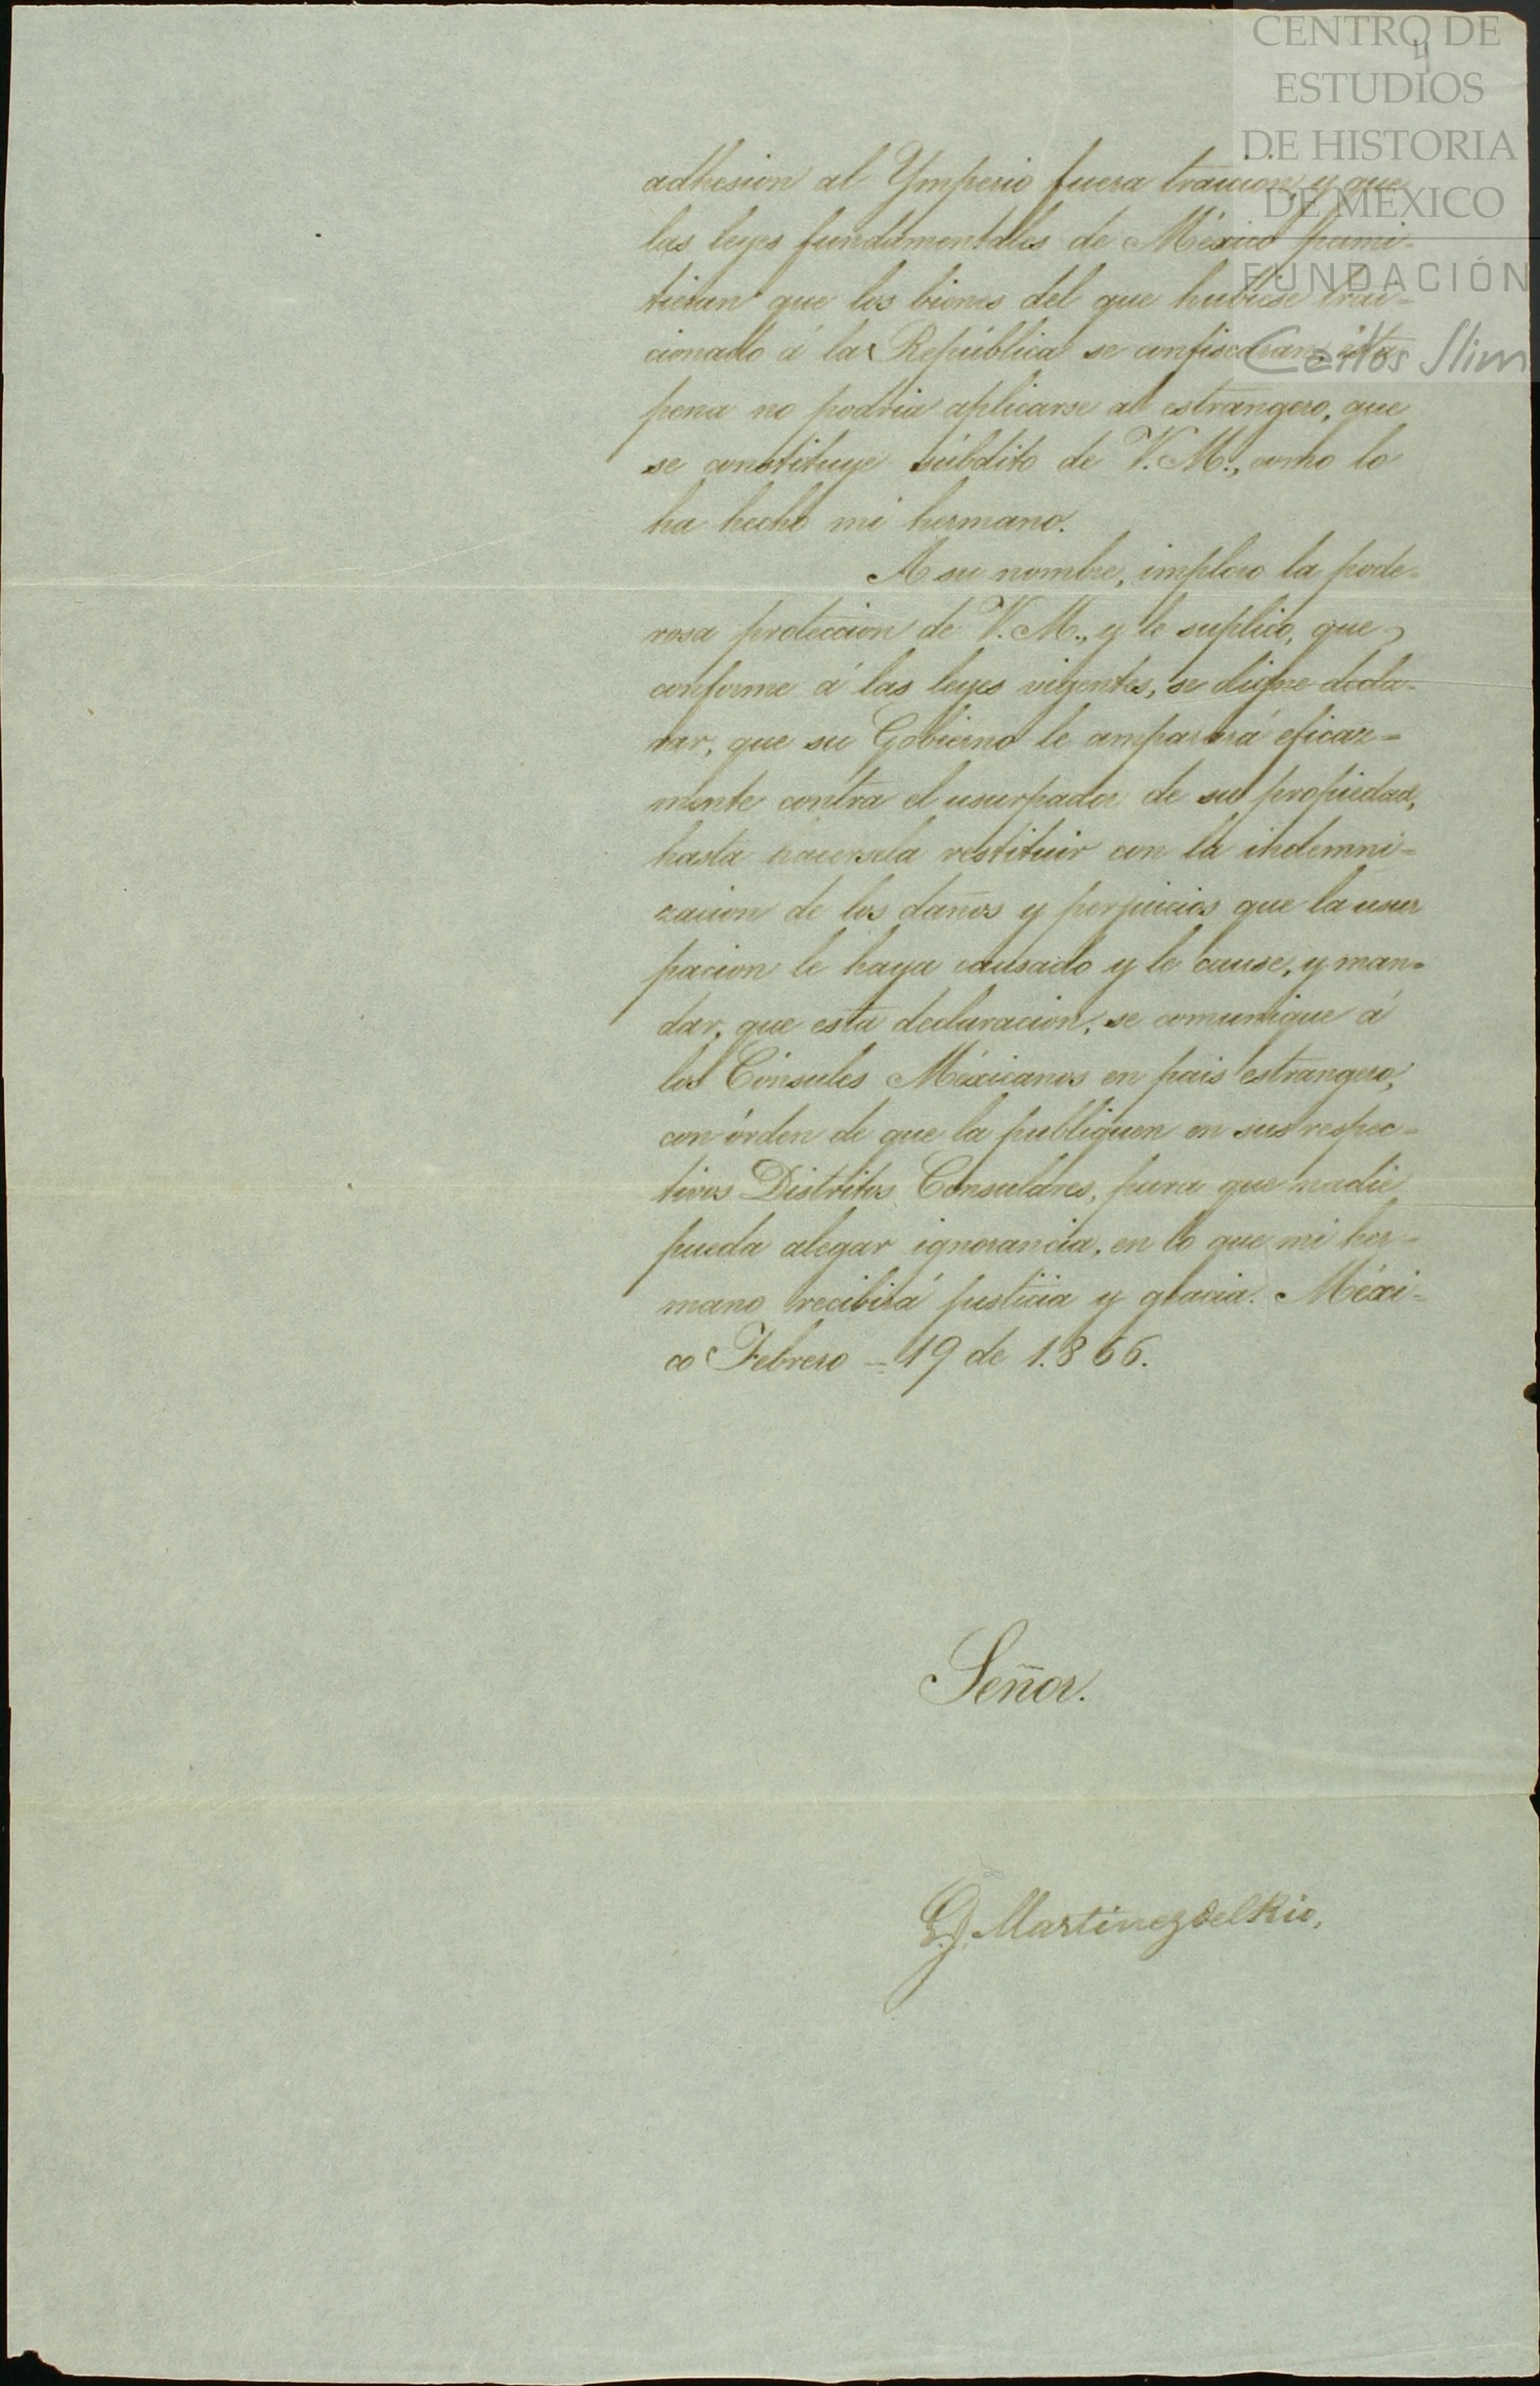 CENTRO DE
ESTUDIOS
DE HISTORIA
DE MÉXICO
FUNDACIÓN
Carlos Slim
4
adhesion al Ymperio fuera traicion, y que
las leyes fundamentales de México permi-
tieran que los bienes del que hubiese trai-
cionado á la República se confiscaran, esta
pena no podria aplicarse al estrangero, que
se constituye súbdito de V. M., como lo
ha hecho mi hermano.
A su nombre, imploro la pode-
rosa proteccion de V. M., y le suplico, que
conforme á las leyes vigentes, se digne decla-
rar, que su Gobierno le amparará eficaz-
mente contra el usurpador de su propiedad,
hasta hacersela restituir con la indemni-
zacion de los daños y perjuicios que la usur
pacion le haya causado y le cause, y man-
dar, que esta declaracion, se comunique á
los Cónsules Méxicanos en pais estrangero,
con órden de que la publiquen en sus respec-
tivos Distritos Consulares, para que nadie
pueda alegar ignorancia, en lo que mi her-
mano recibirá justicia y gracia. Méxi-
co Febrero 19 de 1.866.
Señor.
Martinez del Rio,